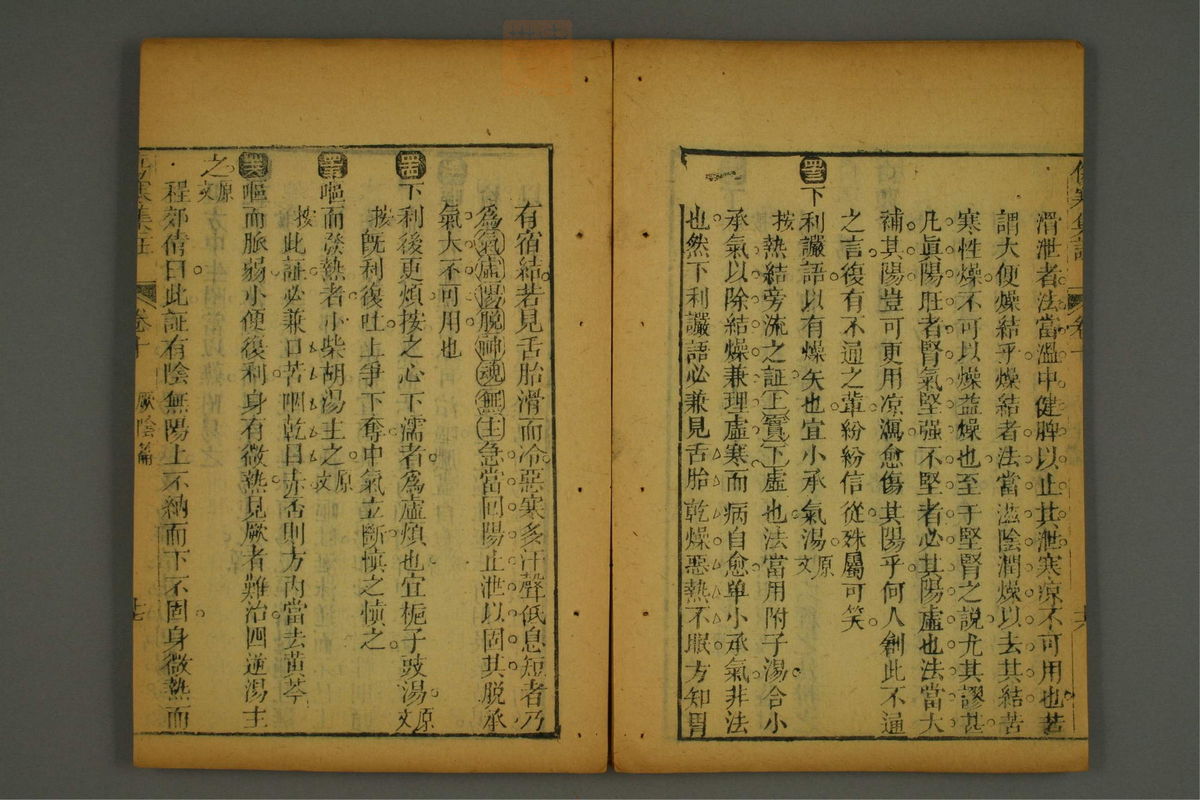 滑泄者法當溫中健脾以止其泄寒凉不可用也若
謂大便燥結乎燥結者法當滋陰潤燥以去其結苦
寒性燥不可以燥益燥也至于堅腎之說尤其謬甚
凡眞陽旺者腎氣堅强不堅者必其陽虛也法當大
補其陽豈可更用凉瀉愈傷其陽乎何人創此不通
之言復有不通之輩紛紛信從殊屬可笑
下利讝語以有燥矢也宜小承氣湯原文
按熱結旁流之証上實下虛也法當用附子湯合小
承氣以除結燥兼理虛寒而病自愈單小承氣非法
也然下利讝語必兼見舌胎乾燥惡熱不眠方知胃
有宿結若見舌胎滑而冷惡寒多汗聲低息短者乃
爲氣虛陽脫神魂無主急當回陽止泄以固其脫承
氣大不可用也
下利後更煩按之心下濡者爲虛煩也宜梔子豉湯原文
按旣利復吐上爭下奪中氣立斷愼之愼之
嘔而發熱者小柴胡湯主之原文
按此証必兼口苦咽乾目赤否則方內當去黃芩
嘔而脈弱小便復利身有微熱見厥者難治四逆湯主
之原文
程郊倩曰此証有陰無陽上不納而下不固身微熱而
卷十 厥陰篇